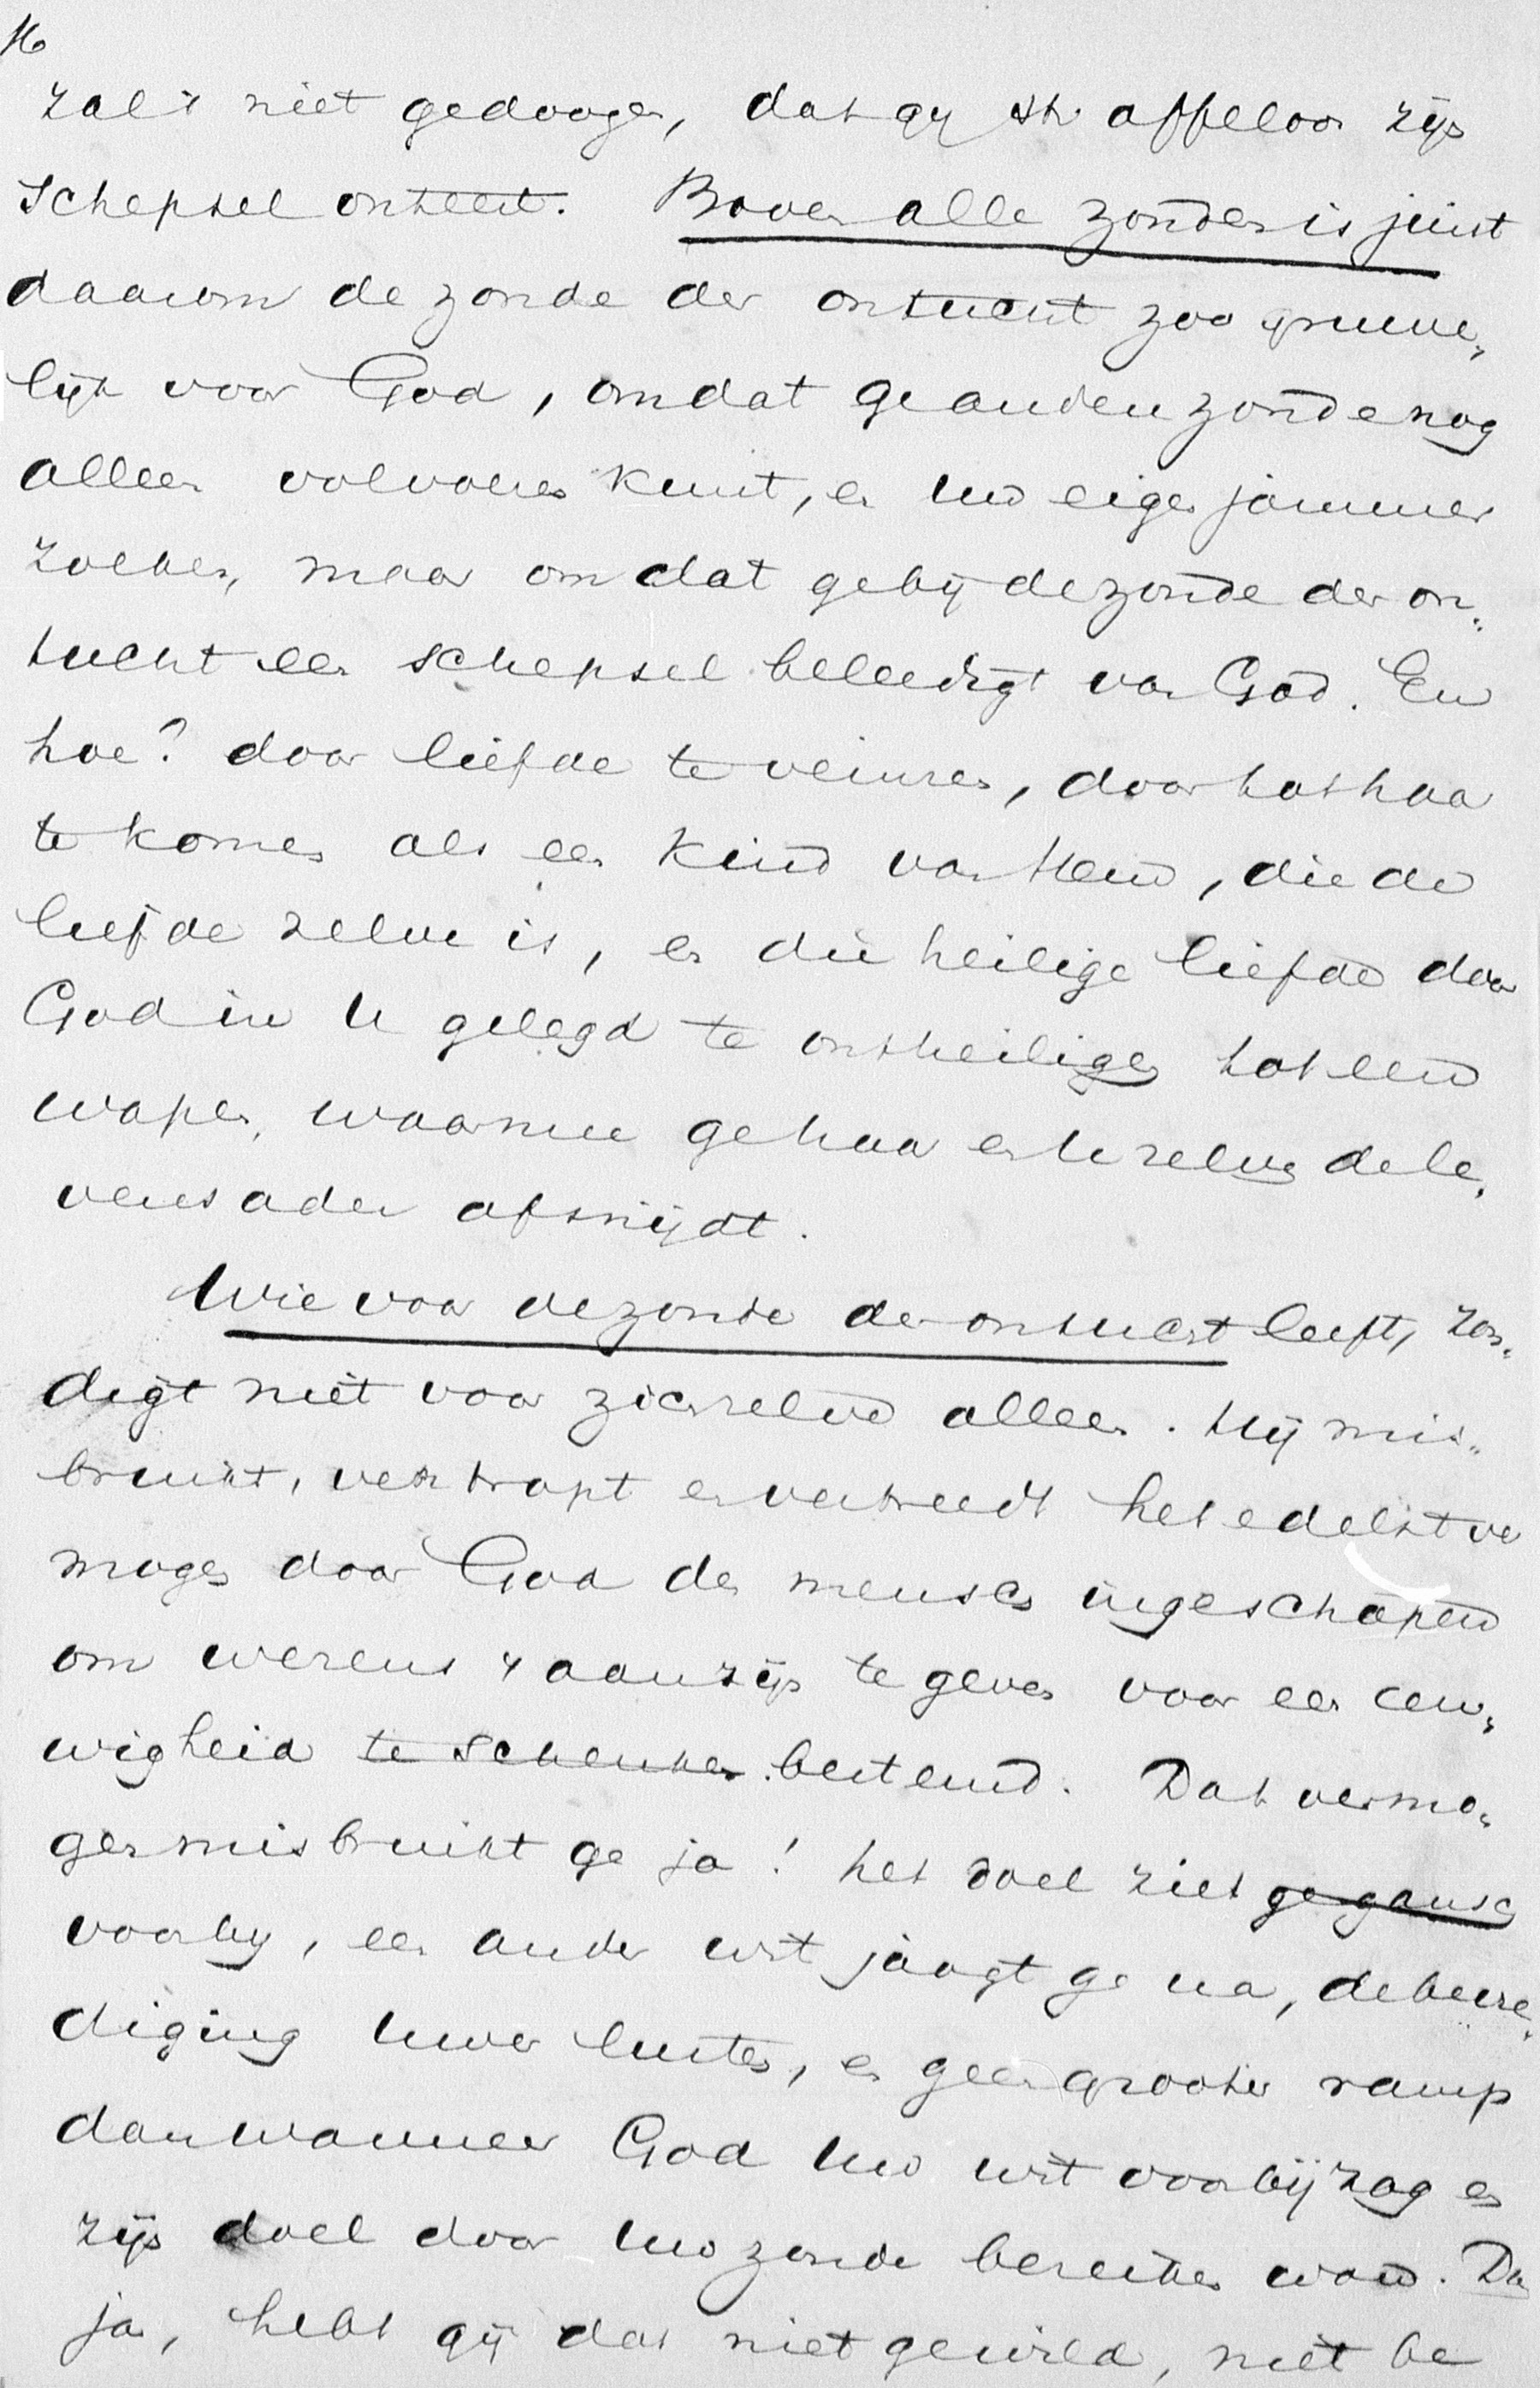 16
zal 't niet gedoogen, dat gij straffeloos zijn
schepsel onteert. Boven alle zonden is juist
daarom de zonde der ontucht zoo gruwe„
lijk voor God, omdat ge andere zonde nog
alleen volvoeren kunt, en uw eigen jammer
zoeken, maar omdat ge bij de zonde der on„
tucht een schepsel beleedigt van God. En
hoe? door liefde te veinzen, door tot haar
te komen als een kind van Hem, die de
liefde zelve is, en die heilige liefde door
God in U gelegd te ontheiligen tot een
wapen, waarmee ge haar en U zelven de le„
vensader afsnijdt.
Wie voor de zonde der ontucht leeft, zon„
digt niet voor zichzelven alleen. Hij mis„
bruikt, vertrapt en vertreedt het edelst ver
mogen door God den mensch ingeschapen
om wezens 't aanzijn te geven voor een eeu„
wigheid te schenken bestemd. Dat vermo„
gen misbruikt ge ja! het doel ziet ge gansch
voorbij, een ander wit jaagt ge na, de bevre„
diging uwer lusten, en geen grooter ramp
dan wanneer God uw wit voorbijzag en
zijn doel door uw zonde bereiken wou. Da
ja, hebt gij dat niet gewild, niet be